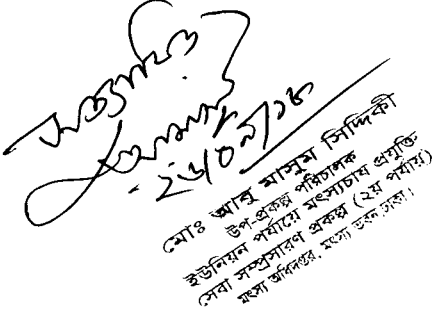 সত্যায়িত
মোঃ আবু মাসুম সিদ্দিকী
উপ-প্রকল্প পরিচালক
ইউনিয়ন পর্যায়ে মৎস্যচাষ প্রযুক্তি
সেবা সম্প্রসারণ প্রকল্প (২য় পর্যায়)
মৎস্য অধিদপ্তর, মৎস্য ভবন, ঢাকা।